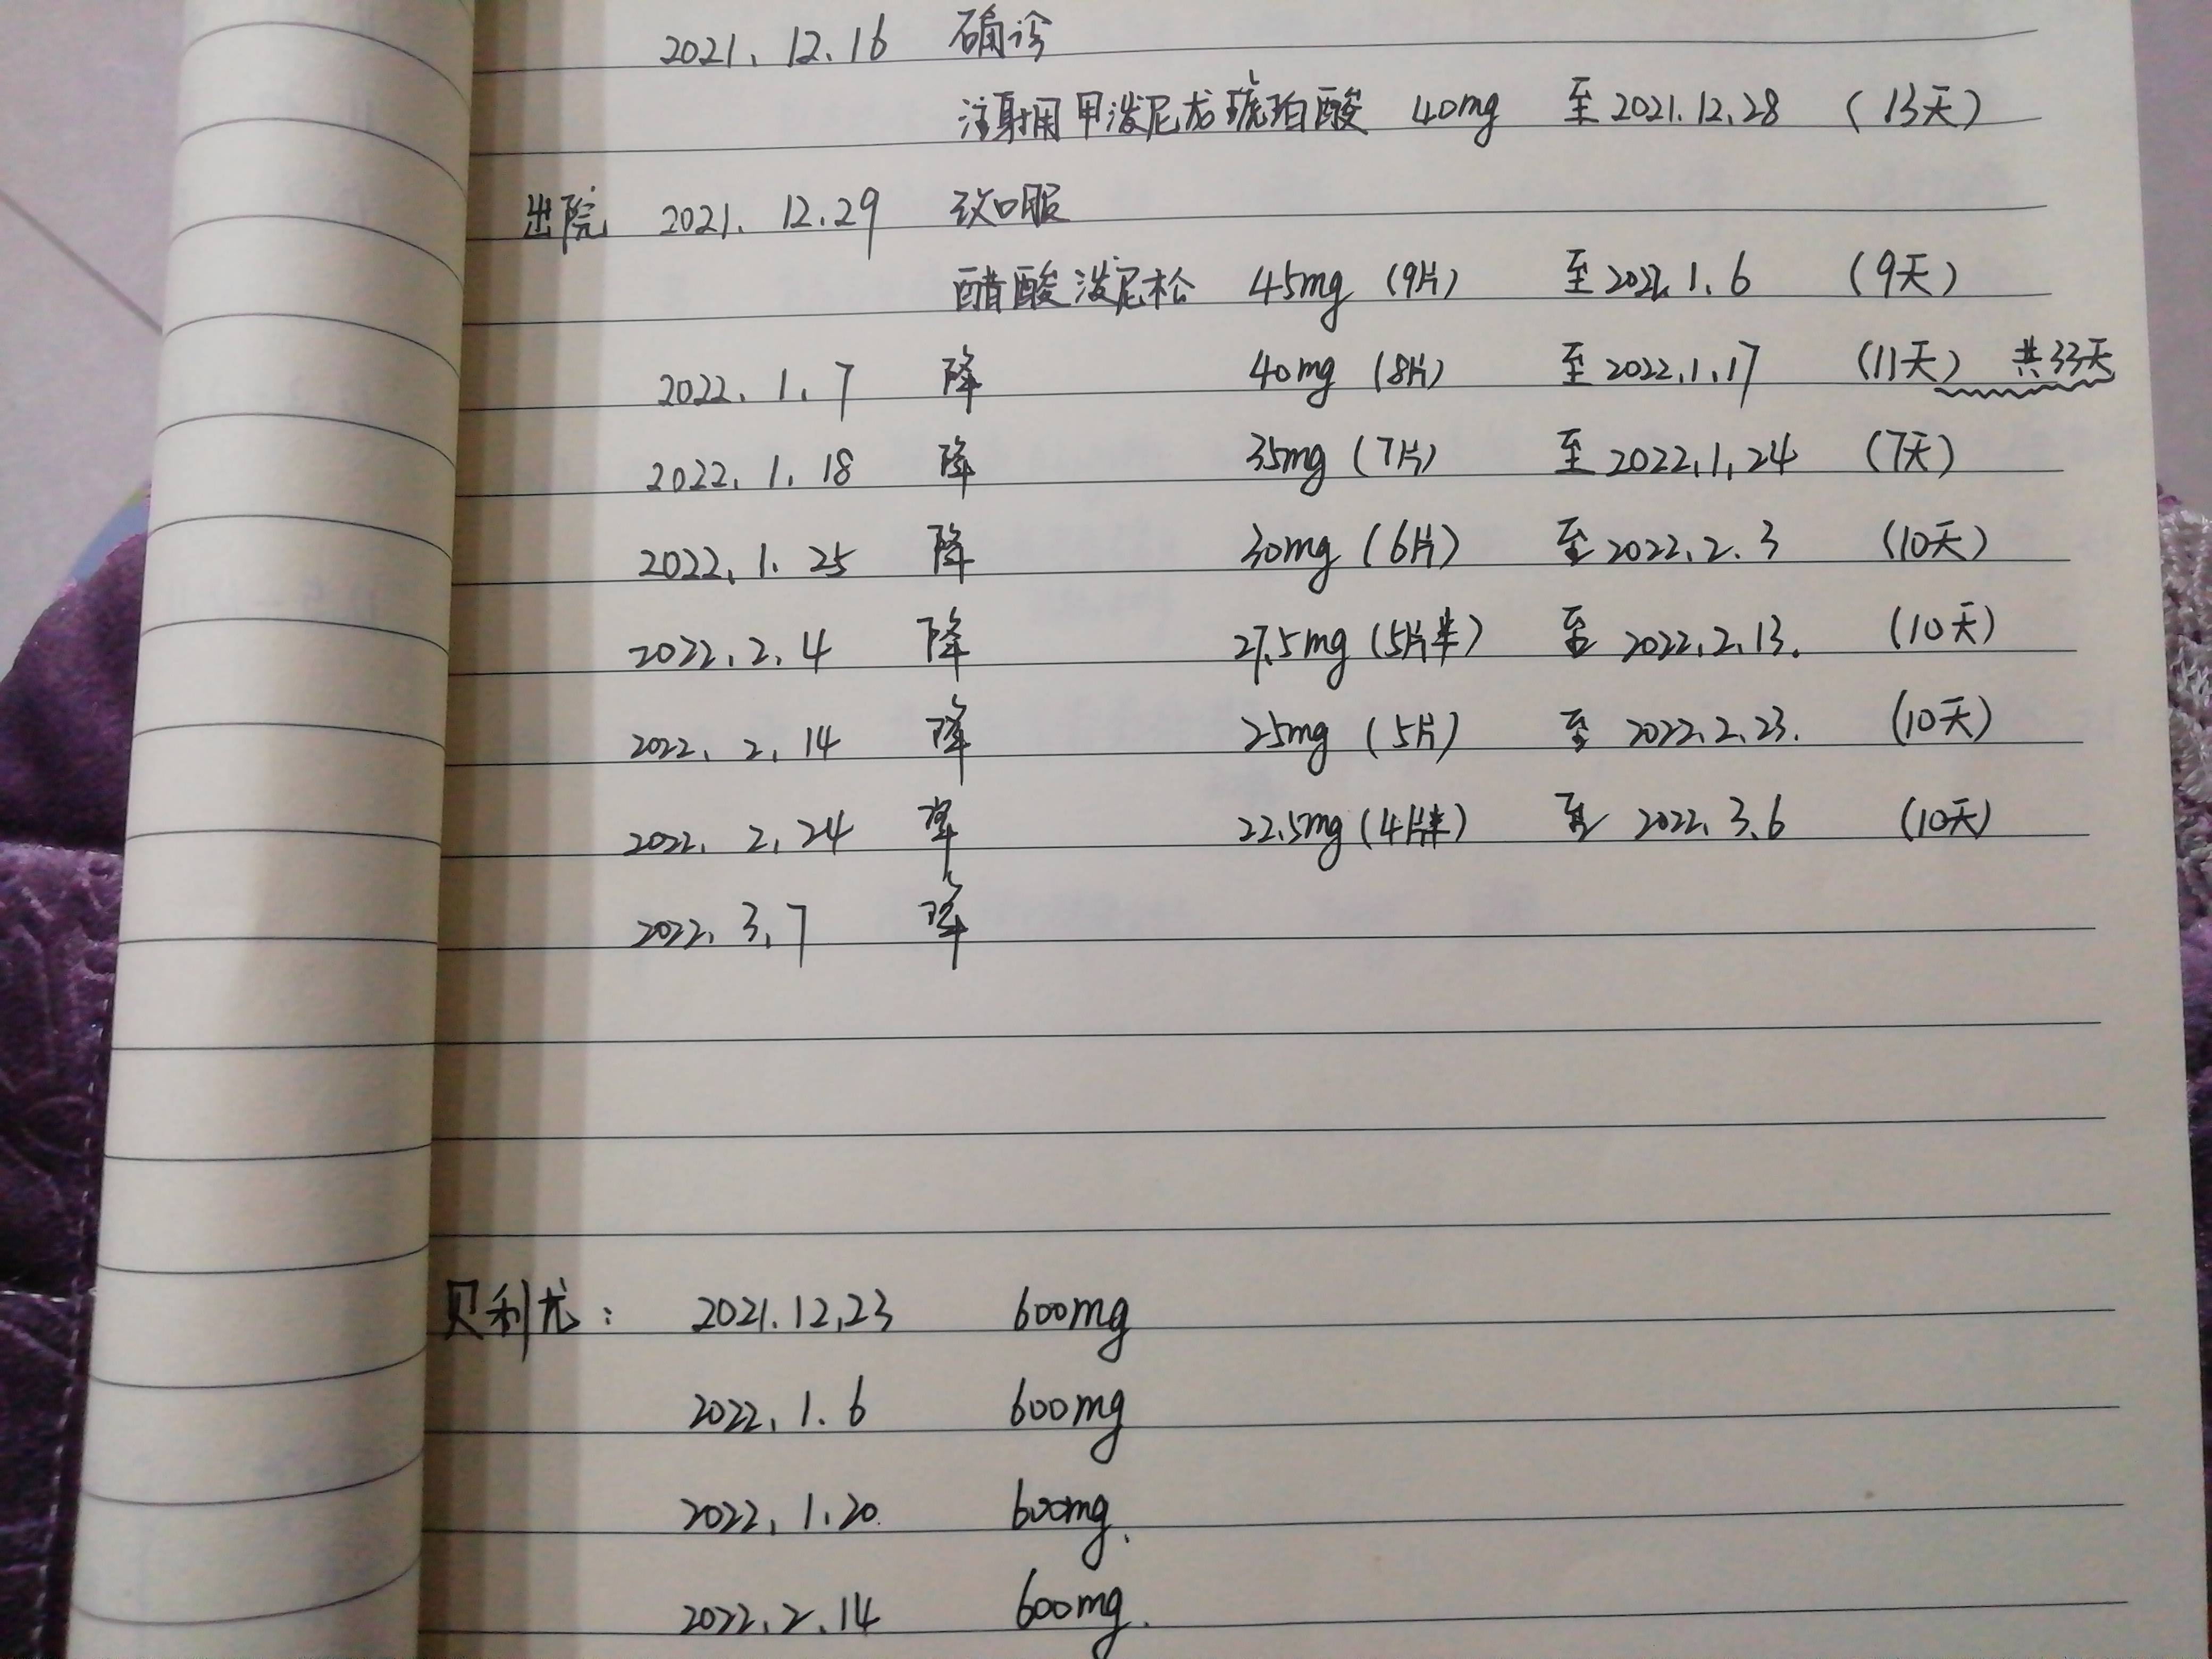 2021.12.16 确诊
注射用甲泼尼龙琥珀酸 40mg 至2021.12.28 (13天)
出院 2021.12.29 改口服
醋酸泼尼松 45mg (9片) 至2022.1.6 (9天)
2022.1.7 降 40mg (8片) 至2022.1.17 (11天) 共33天
2022.1.18 降 35mg (7片) 至2022.1.24 (7天)
2022.1.25 降 30mg (6片) 至2022.2.3 (10天)
2022.2.4 降 27.5mg (5片半) 至2022.2.13. (10天)
2022.2.14 降 25mg (5片) 至2022.2.23. (10天)
2022.2.24 降 22.5mg (4片半) 至2022.3.6 (10天)
2022.3.7 降
贝利尤: 2021.12.23 600mg
2022.1.6 600mg
2022.1.20. 600mg.
2022.2.14 600mg.